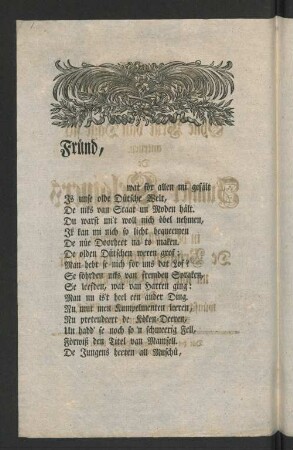 Fründ,
wat för allen mi gefält
Is unse olde Dütsche Welt,
De niks van Staat un Moden hält.
Du warst mi't woll nich öbel nehmen,
Ik kan mi nich so licht bequemen
De nüe Doorheet na to maken.
De olden Dütschen weren grof;
Man hebt se nich för uns dat Lof?
Se föhrden niks van fremden Spraken,
Se leefden, wat van Harten ging!
Man nu is't heel een ander Ding.
Nu mut men Kumpelmenten leeren,
Nu pretendeert de Köken-Deeren,
Un hadd' se noch so'n schmeerig Fell,
Förwiß den Titel van Mamsell.
De Jungens heeten all Muschü,